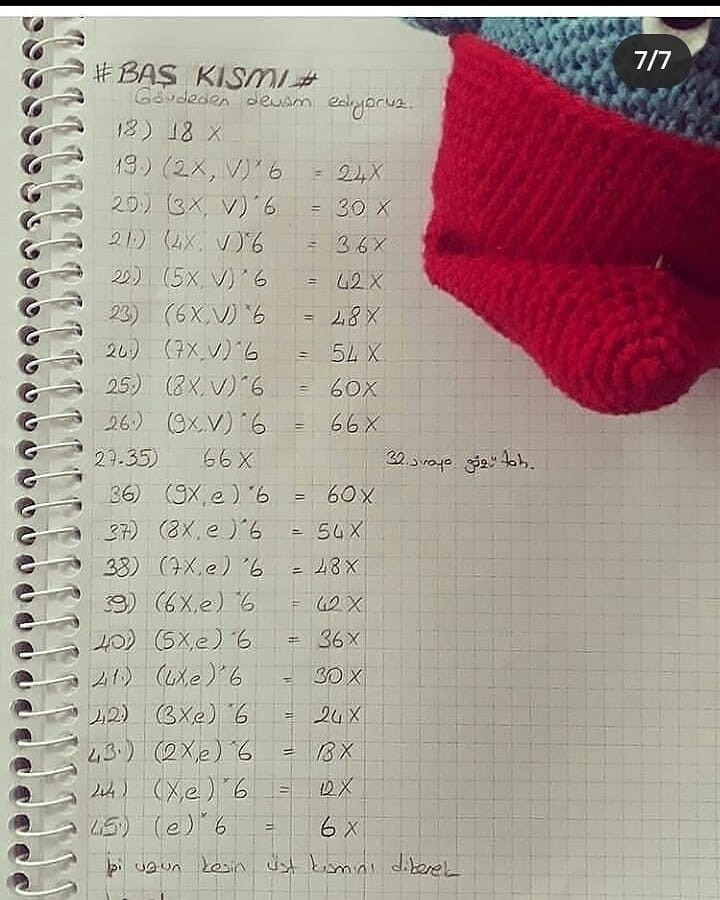 7/7
#BAŞ KISMI#
Gövdeden devam ediyoruz.
18) 18 X
19.) (2X, V)*6 = 24X
20.) (3X, V)*6 = 30 X
21.) (4X, V)*6 = 36X
22) (5X,V)*6 = 42X
23) (6X,V)*6 = 48X
24.) (7X,V)*6 = 54 X
25.) (8X,V)*6 = 60X
26.) (9X,V)*6 = 66X
27-35) 66X 32.sıraya gözü tak.
36) (9X,e)*6 = 60X
37) (8X,e)*6 = 54X
38) (7X,e)*6 = 48X
39) (6X,e)*6 = 42X
40) (5X,e)*6 = 36X
41.) (4X,e)*6 = 30X
42) (3X,e)*6 = 24X
43.) (2X,e)*6 = 18X
44) (X,e)*6 = 12X
45.) (e)*6 = 6X
ipi uzun kesin üst kısmını dikerek